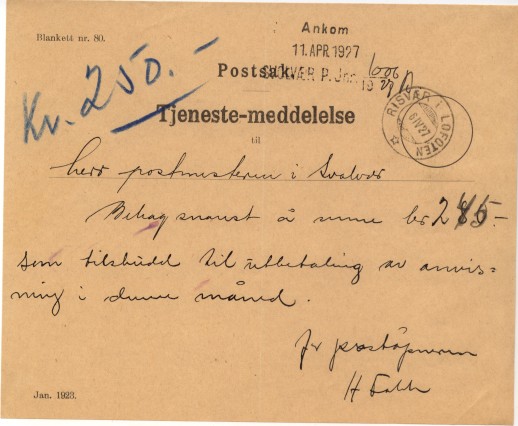 Blankett nr. 80.
Ankom
11. APR. 1927
SVOLVÆR P. Jnr. 1006
19 27
Kr. 250.-
Postsak.
RISVÆR I LOFOTEN
6 IV 27
Tjeneste-meddelelse
til
herr postmesteren i Svolvær
Behag snarest å sende kr 285.-
som tilskudd til utbetaling av anvis=
ning i denne måned.
for poståpneren
H Falch
Jan. 1923.